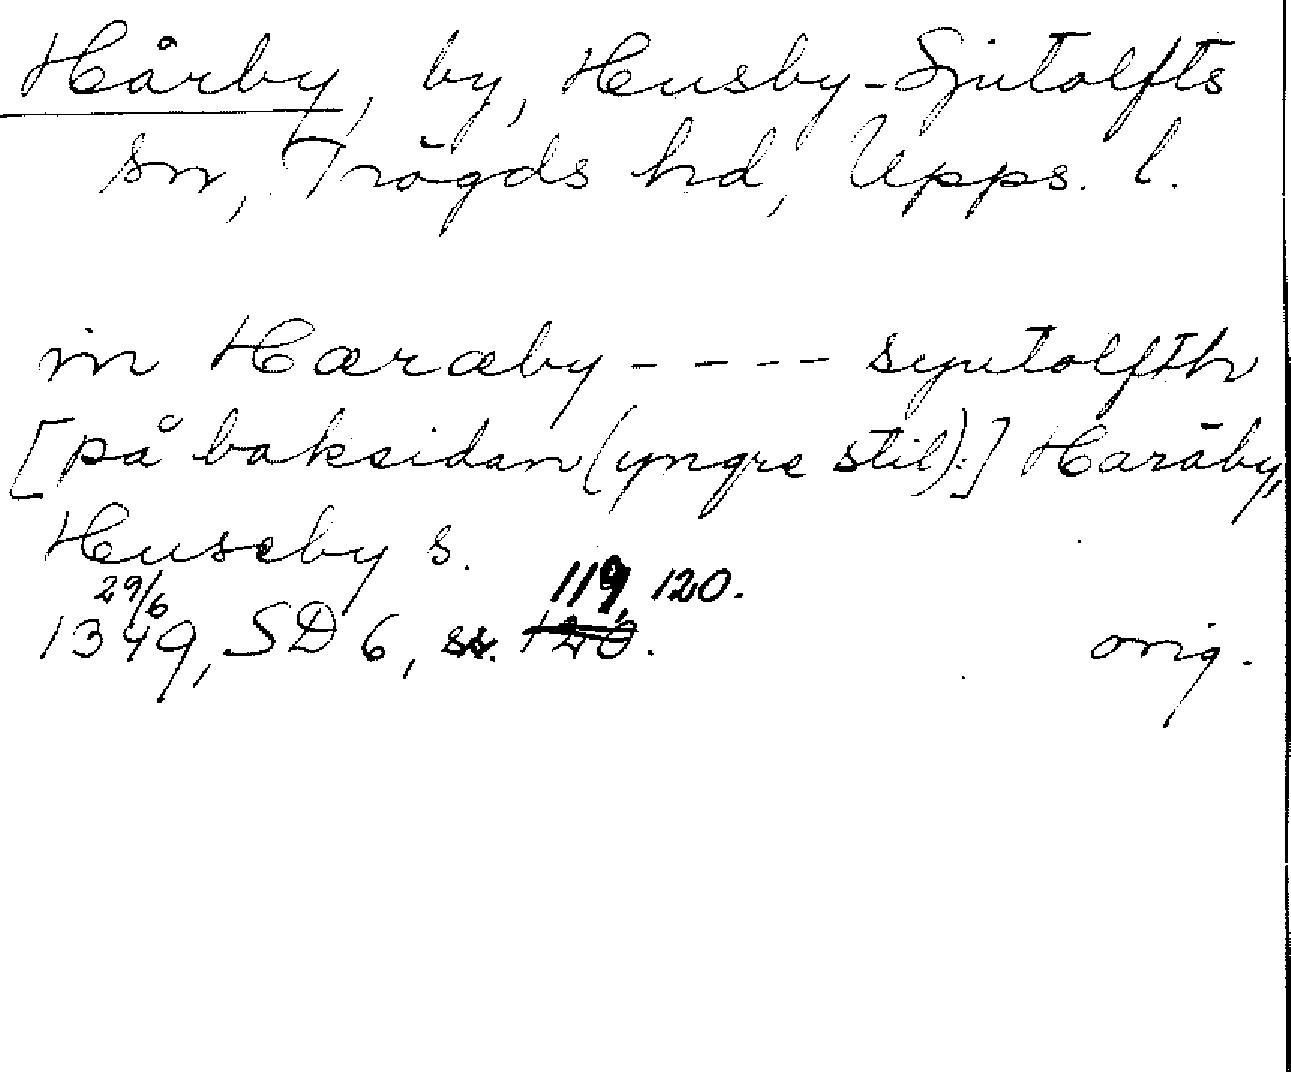 Hårby, by, Husby-Sjutolfts
sn, Trögds hd, Upps. l.
in Haræby - - - - syutolfth
[på baksidan (yngre stil):] Haräby,
Huseby s.
29/6 119, 120.
1349, SD 6, ss. 120. orig.